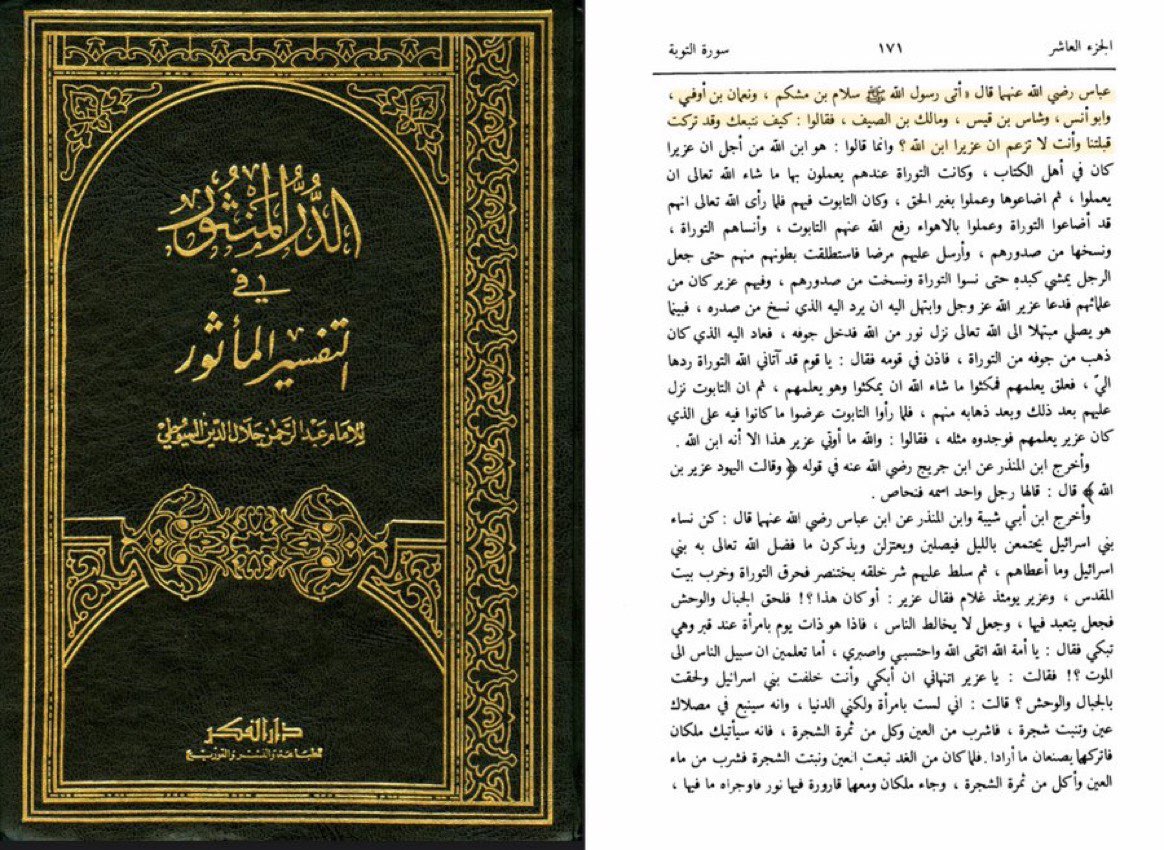 الدر المنثور
في
التفسير المأثور
للامام عبد الرحمن جلال الدين السيوطي
دار الفكر
للطباعة والنشر والتوزيع
الجزء العاشر ١٧١ سورة التوبة
عباس رضي الله عنهما قال « أتى رسول الله ﷺ سلام بن مشكم ، ونعمان بن أوفي ،
وابو أنس ، وشاس بن قيس ، ومالك بن الصيف ، فقالوا : كيف نتبعك وقد تركت
قبلتنا وأنت لا تزعم ان عزيرا ابن الله ؟ وانما قالوا : هو ابن الله من أجل ان عزيرا
كان في أهل الكتاب ، وكانت التوراة عندهم يعملون بها ما شاء الله تعالى ان
يعملوا ، ثم اضاعوها وعملوا بغير الحق ، وكان التابوت فيهم فلما رأى الله تعالى انهم
قد أضاعوا التوراة وعملوا بالاهواء رفع الله عنهم التابوت ، وأنساهم التوراة ،
ونسخها من صدورهم ، وأرسل عليهم مرضا فاستطلقت بطونهم منهم حتى جعل
الرجل يمشي كبده حتى نسوا التوراة ونسخت من صدورهم ، وفيهم عزير كان من
علمائهم فدعا عزير الله عز وجل وابتهل اليه ان يرد اليه الذي نسخ من صدره ، فبينما
هو يصلي مبتهلا الى الله تعالى نزل نور من الله فدخل جوفه ، فعاد اليه الذي كان
ذهب من جوفه من التوراة ، فاذن في قومه فقال : يا قوم قد آتاني الله التوراة ردها
اليّ ، فعلق يعلمهم فمكثوا ما شاء الله ان يمكثوا وهو يعلمهم ، ثم ان التابوت نزل
عليهم بعد ذلك وبعد ذهابه منهم ، فلما رأوا التابوت عرضوا ما كانوا فيه على الذي
كان عزير يعلمهم فوجدوه مثله ، فقالوا : والله ما أوتي عزير هذا الا أنه ابن الله .
وأخرج ابن المنذر عن ابن جريج رضي الله عنه في قوله ﴿ وقالت اليهود عزير بن
الله ﴾ قال : قالها رجل واحد اسمه فنحاص .
وأخرج ابن أبي شيبة وابن المنذر عن ابن عباس رضي الله عنهما قال : كن نساء
بني اسرائيل يجتمعن بالليل فيصلين ويعتزلن ويذكرن ما فضل الله تعالى به بني
اسرائيل وما أعطاهم ، ثم سلط عليهم شر خلقه بختنصر فحرق التوراة وخرب بيت
المقدس ، وعزير يومئذ غلام فقال عزير : أو كان هذا ؟! فلحق الجبال والوحش
فجعل يتعبد فيها ، وجعل لا يخالط الناس ، فاذا هو ذات يوم بامرأة عند قبر وهي
تبكي فقال : يا أمة الله اتقى الله واحتسبي واصبري ، أما تعلمين ان سبيل الناس الى
الموت ؟! فقالت : يا عزير اتنهاني ان أبكي وأنت خلفت بني اسرائيل ولحقت
بالجبال والوحش ؟ قالت : اني لست بامرأة ولكني الدنيا ، وانه سينبع في مصلاك
عين وتنبت شجرة ، فاشرب من العين وكل من ثمرة الشجرة ، فانه سيأتيك ملكان
فاتركهما يصنعان ما أرادا . فلما كان من الغد نبعت العين ونبتت الشجرة فشرب من ماء
العين وأكل من ثمرة الشجرة ، وجاء ملكان ومعهما قارورة فيها نور فاوجراه ما فيها ،